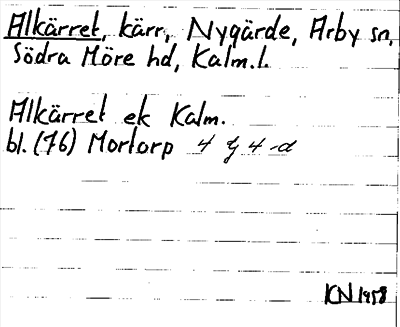 Alkärret, kärr, Nygärde, Arby sn,
Södra Möre hd, Kalm.l.
Alkärret ek Kalm.
bl. (76) Mortorp 4 g 4-d
KN 1958